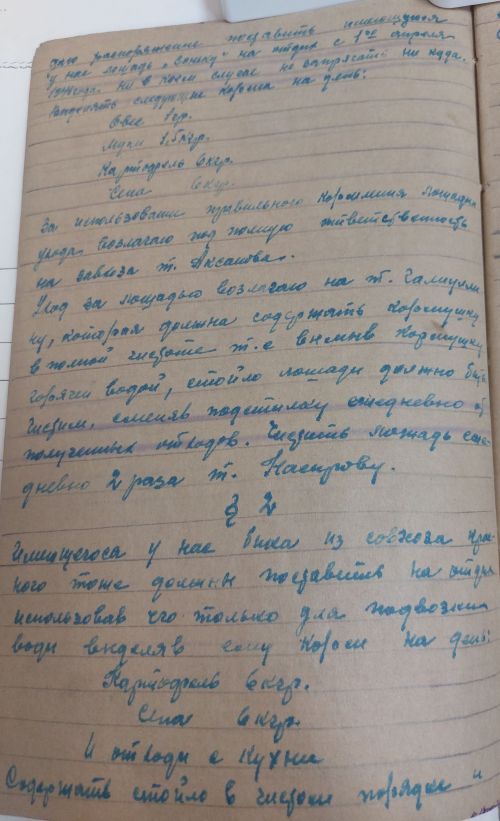 даю распоряжение поставить имеющуюся
у нас лошадь „ " на отдых с 1го апреля
ни в коем случае не запрягать ни куда.
следующие корма на день:
Овес 1 гр.
Муки 1,5 кгр.
Картофель 6 кгр.
Сена 6 кгр.
За использование правильного кормления лошади
ухода возлагаю под полную ответственность
на завхоза т. Аксанова.
Уход за лошадью возлагаю на т.
ну, которая должна содержать кормушку
в полной чистоте т.е вымыв кормушку
горячей водой, стойло лошади должно быть
чистым, сменяв подстилку ежедневно от
полученных отходов. Чистить лошадь еже-
дневно 2 раза т. Насырову.
§ 2
Имещегоса у нас быка из совхоза
ного тоже должны поставить на отдых
использовав его только для подвозки
воды выделяв ему корм на день:
Картофель 6 кгр.
Сена 6 кгр.
И отходы с кухни
Содержать стойло в чистом порядке и